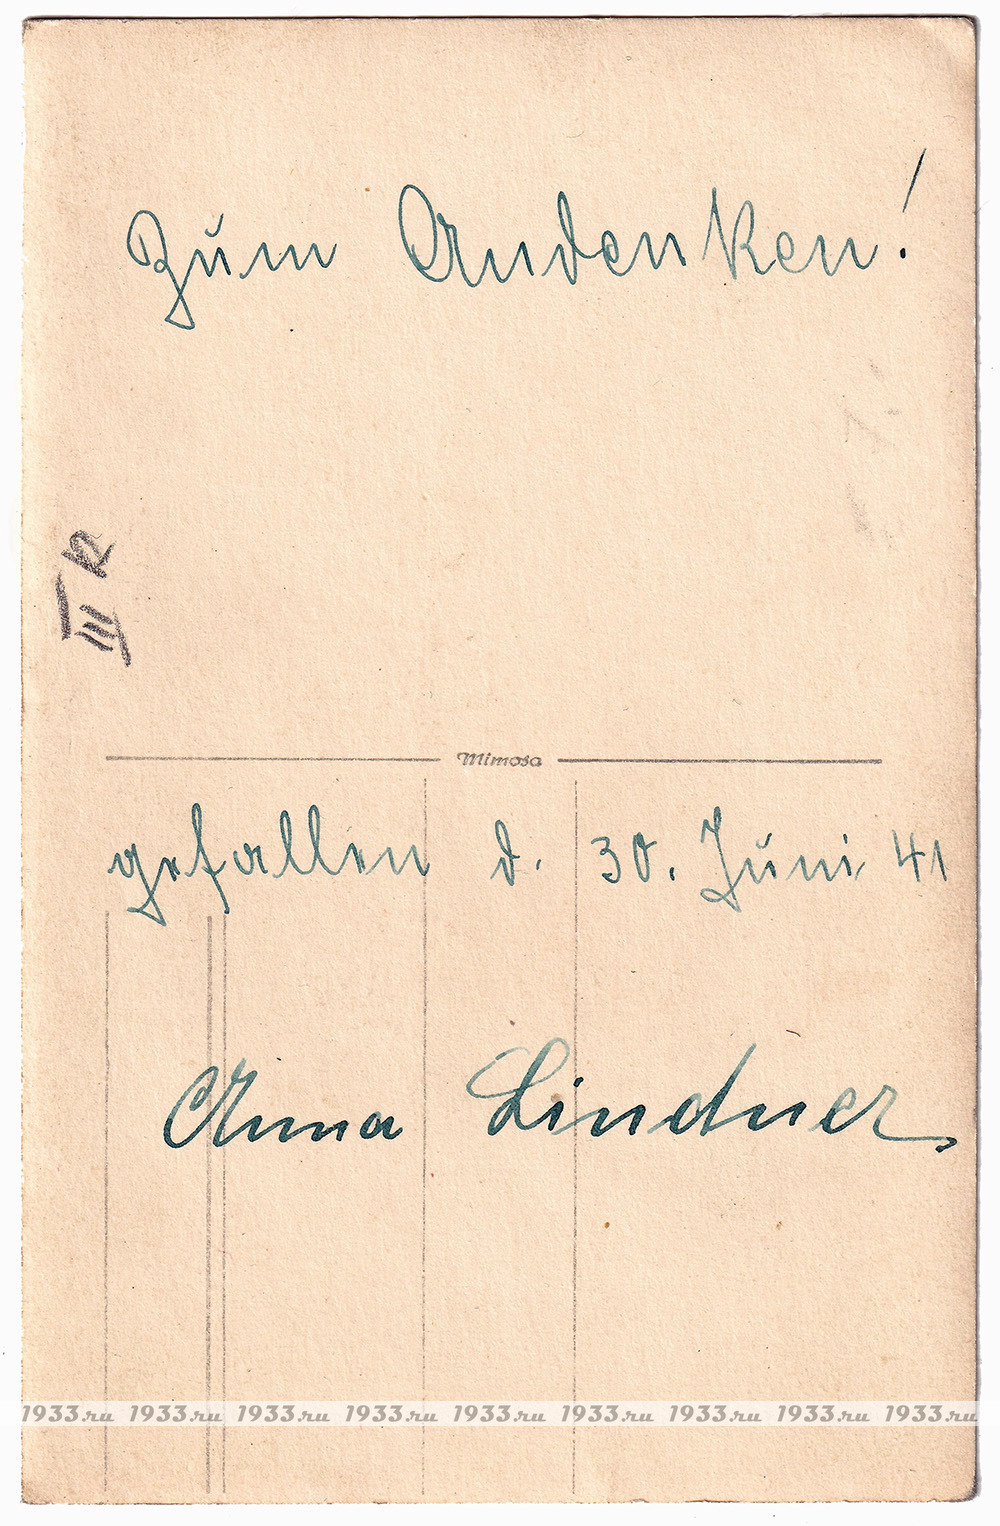 Zum Andenken!
III R
Mimosa
gefallen d. 30. Juni 41
Anna Lindner
1933.ru 1933.ru 1933.ru 1933.ru 1933.ru 1933.ru 1933.ru 1933.ru 1933.ru